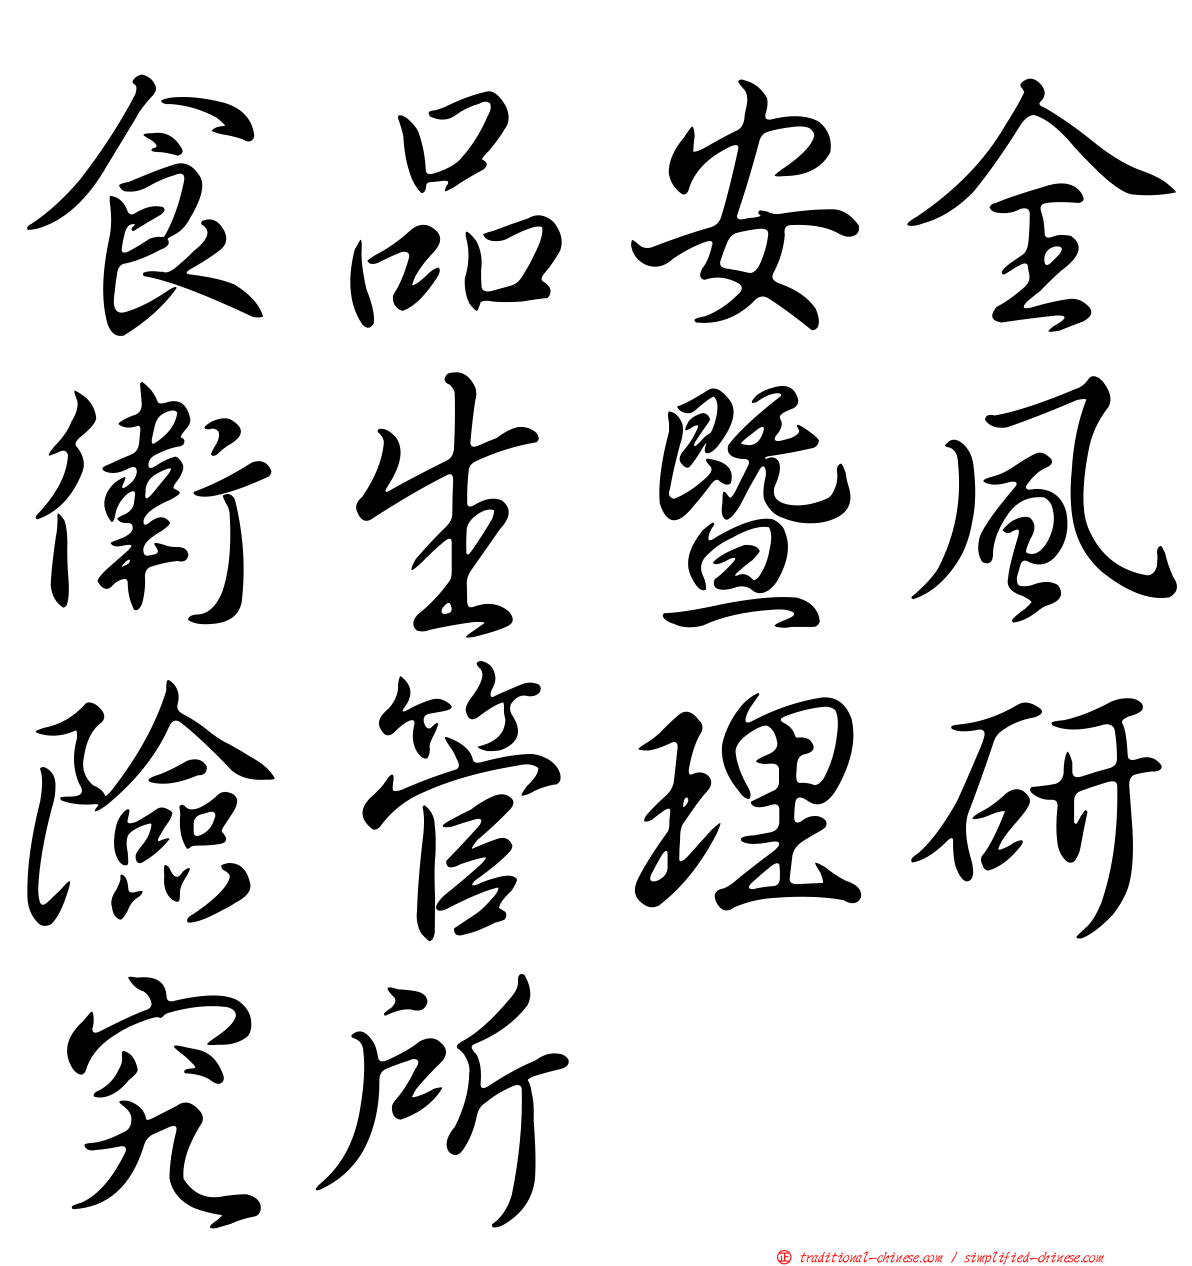 食品安全
衛生暨風
險管理研
究所
㊣ traditional-chinese.com / simplified-chinese.com